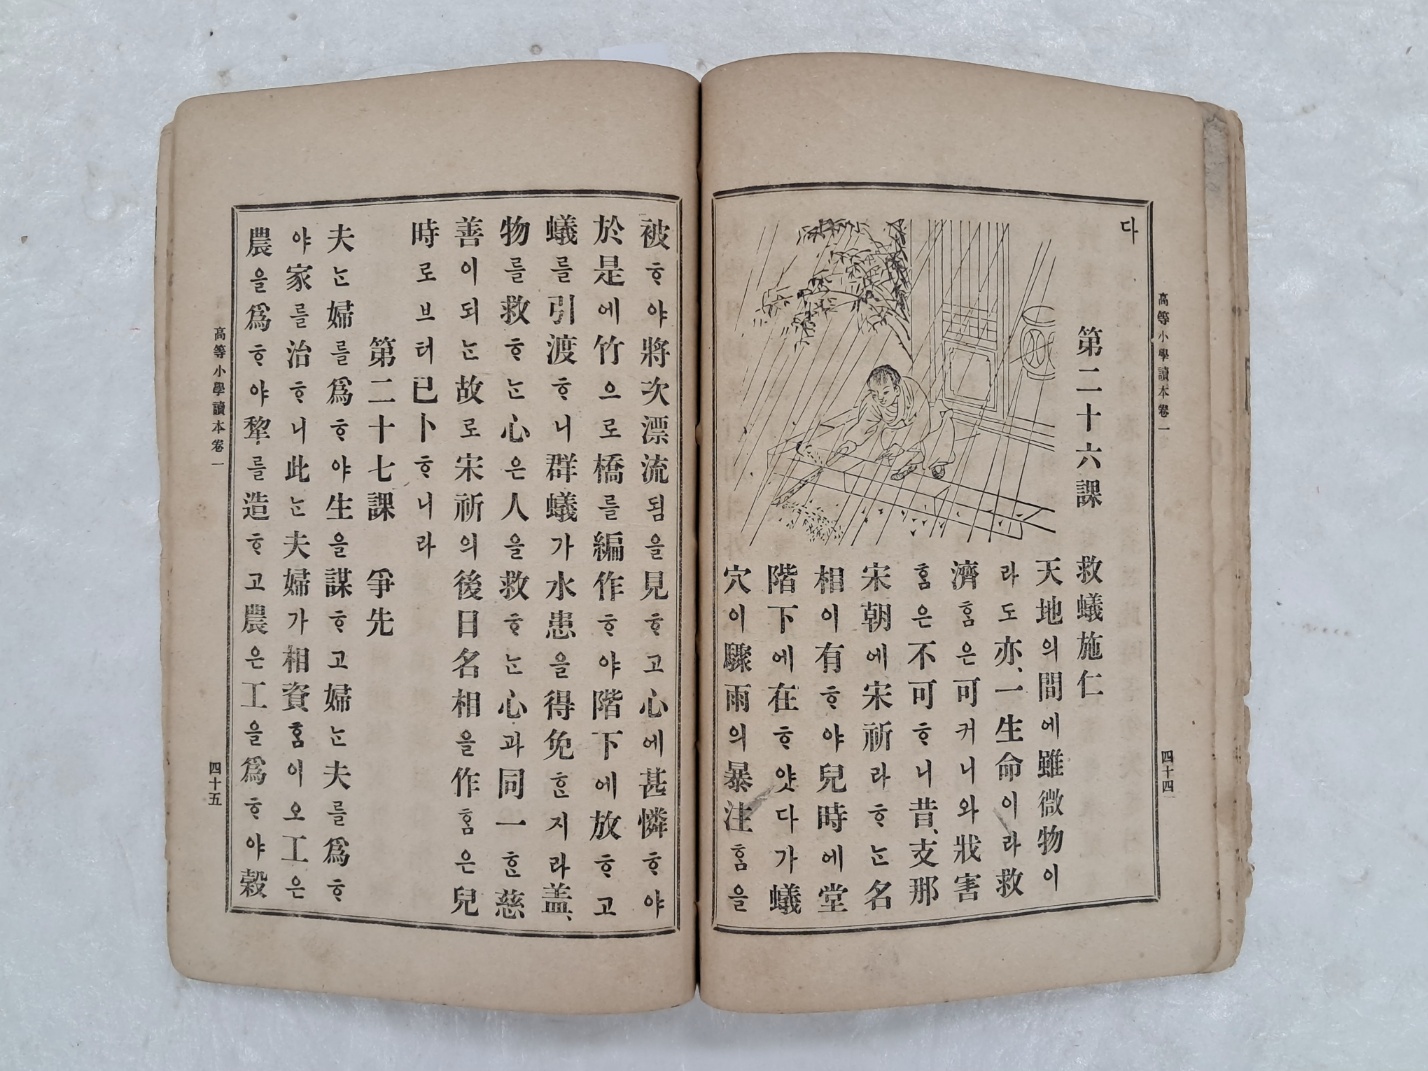 高等小學讀本卷一
四十四
다
第二十六課 救蟻施仁
天地의間에雖微物이
라도亦、一生命이라救
濟홈은可커니와戕害
홈은不可ᄒᆞ니昔、支那
宋朝에宋祈라ᄒᆞᄂᆞᆫ名
相이有ᄒᆞ야兒時에堂
階下에在ᄒᆞ얏다가蟻
穴이驟雨의暴注홈을
被ᄒᆞ야將次漂流됨을見ᄒᆞ고心에甚憐ᄒᆞ야
於是에竹으로橋를編作ᄒᆞ야階下에放ᄒᆞ고
蟻를引渡ᄒᆞ니群蟻가水患을得免ᄒᆞᆫ지라盖、
物를救ᄒᆞᄂᆞᆫ心은人을救ᄒᆞᄂᆞᆫ心과同一ᄒᆞᆫ慈
善이되ᄂᆞᆫ故로宋祈의後日名相을作홈은兒
時로브터已卜ᄒᆞ니라
第二十七課 爭先
夫ᄂᆞᆫ婦를爲ᄒᆞ야生을謀ᄒᆞ고婦ᄂᆞᆫ夫를爲ᄒᆞ
야家를治ᄒᆞ니此ᄂᆞᆫ夫婦가相資홈이오工은
農을爲ᄒᆞ야犂를造ᄒᆞ고農은工을爲ᄒᆞ야穀
高等小學讀本卷一
四十五